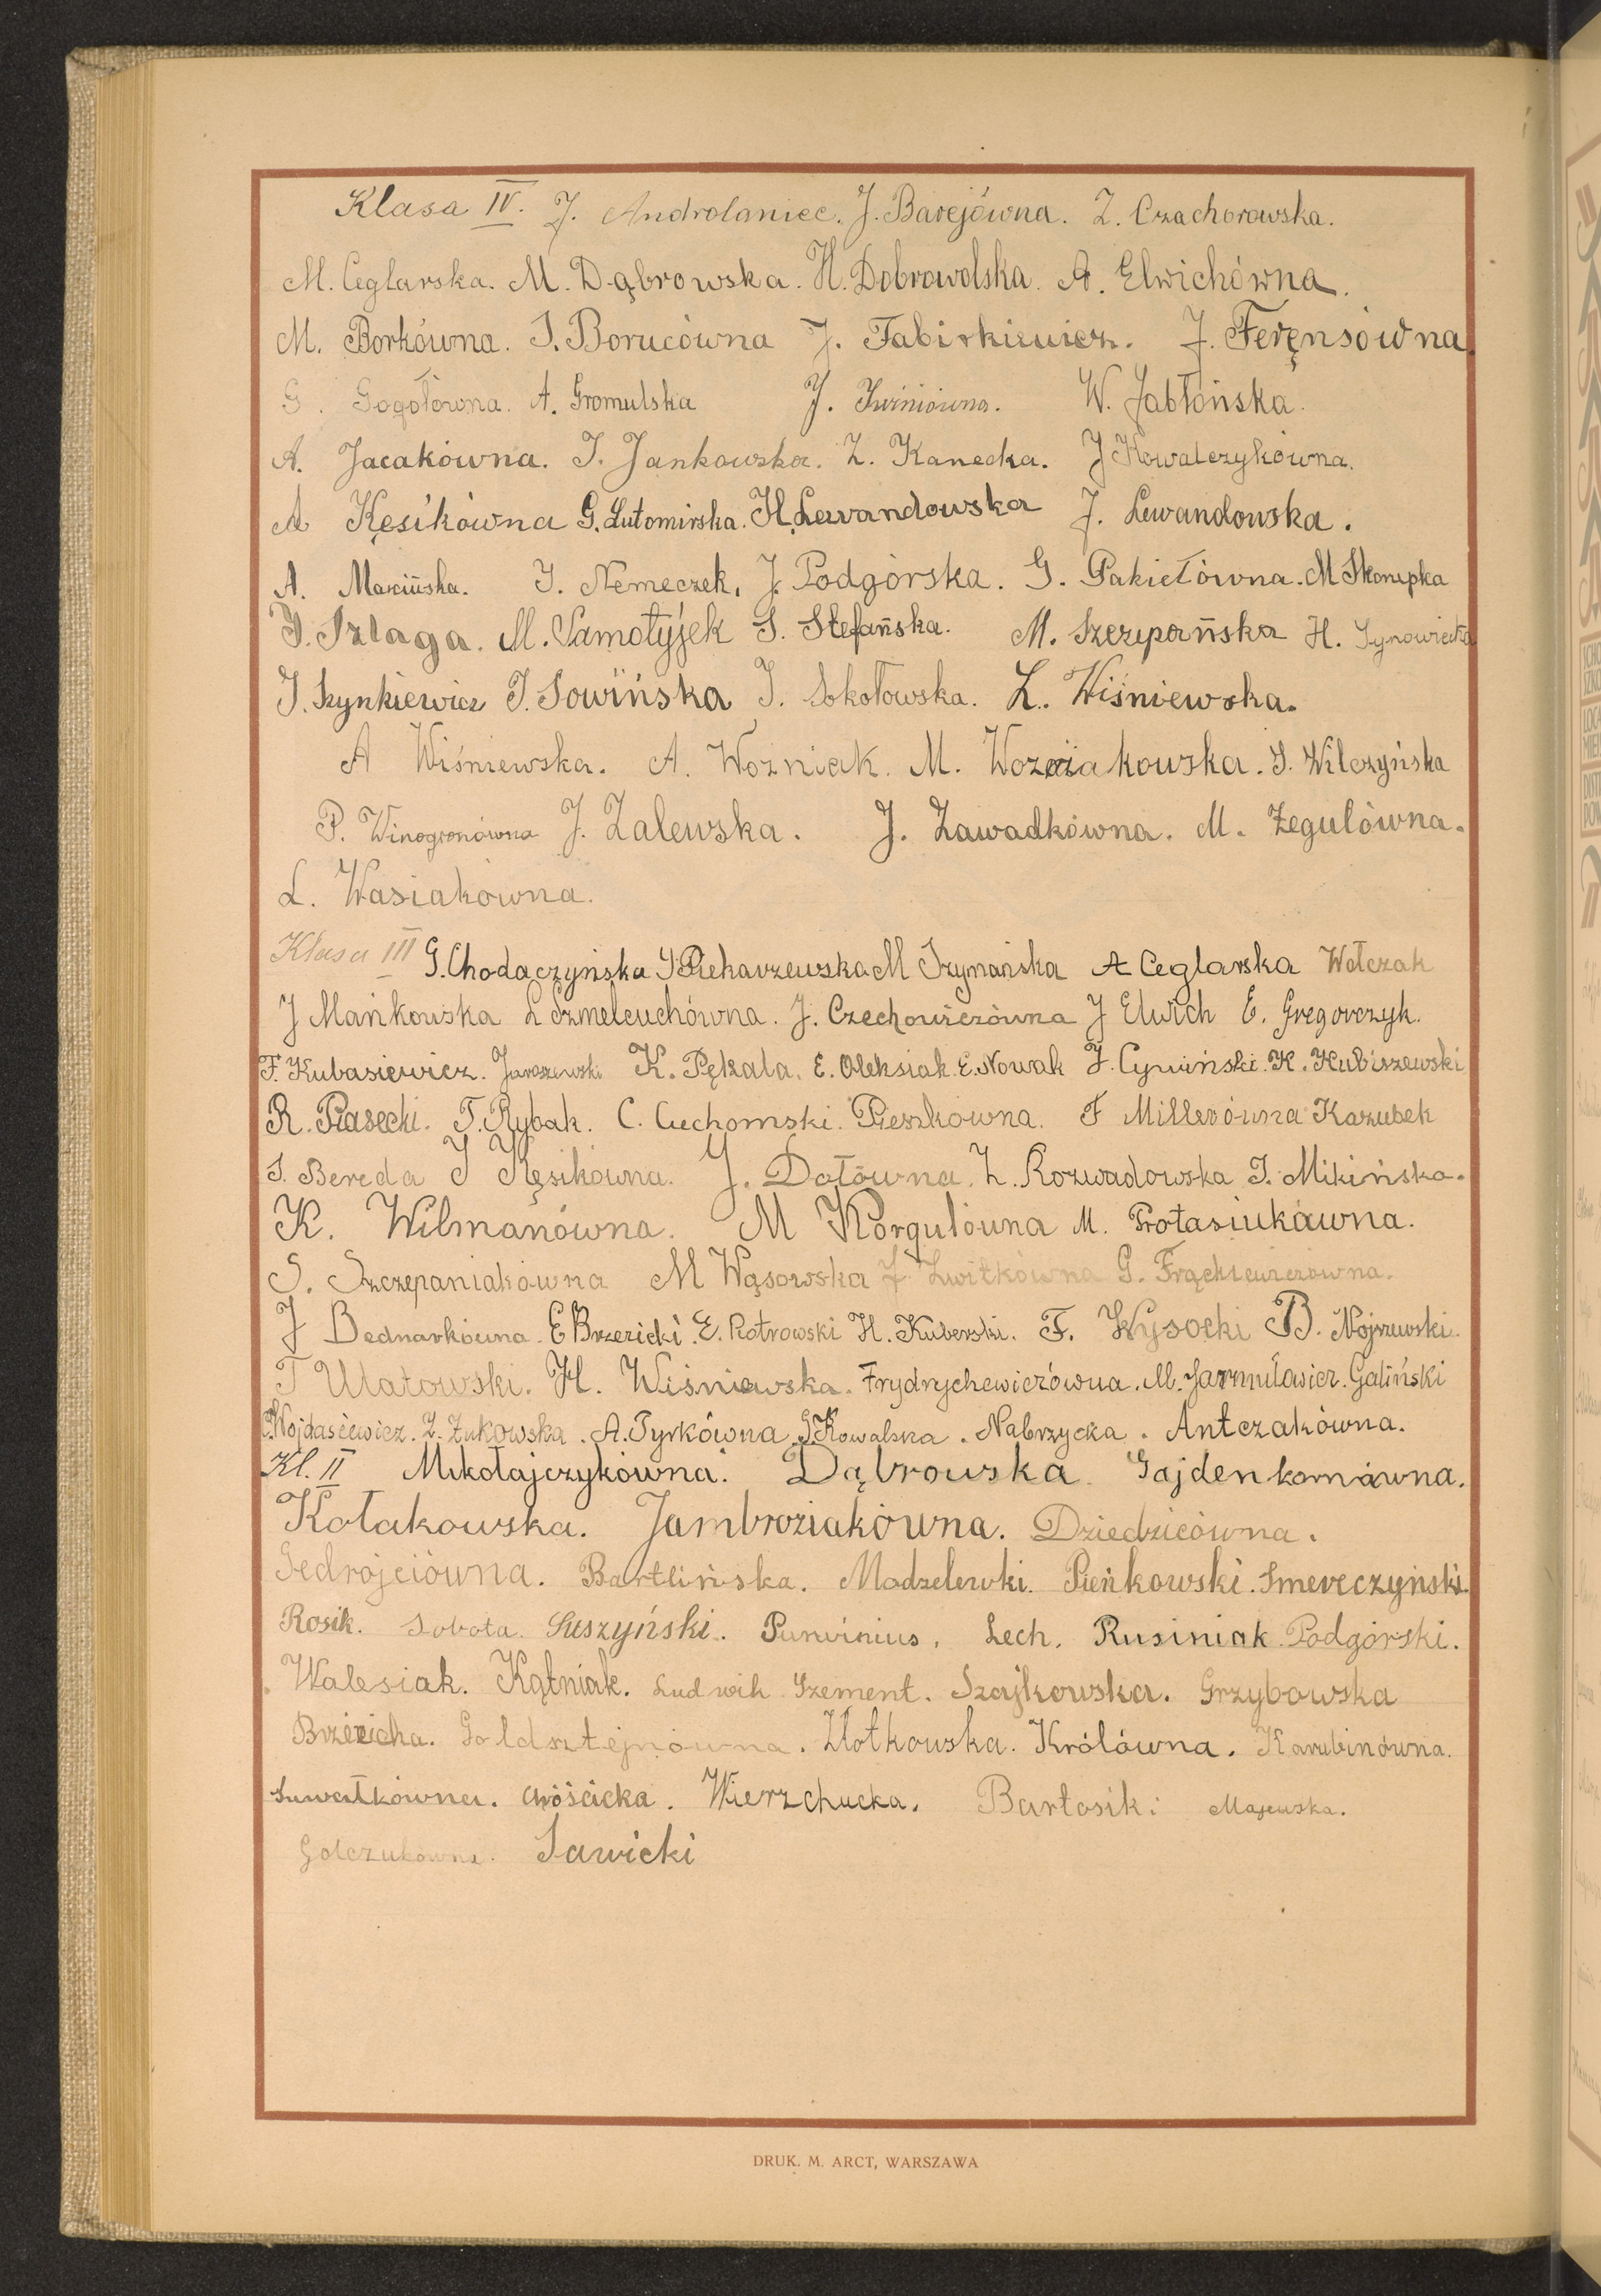 Klasa IV. J. Androlaniec. J. Barejówna. Z. Czachorowska.
M. Ceglarska. M. Dąbrowska. H. Dobrowolska. A. Elwichówna.
M. Borkówna. I. Borucówna J. Fabirkiewicz. J. Feręnsówna.
G. Gogołówna. A. Gromulska J. Iwiniówna. W. Jabłońska.
A. Jacakówna. I. Jankowska. Z. Kanecka. J Kowalczykówna.
A Kęsikówna G. Lutomirska. H. Lewandowska J. Lewandowska.
A. Marcińska. I. Nemeczek. J. Podgórska. G. Pakietówna. M Skorupka
I. Szlaga. M. Samotyjek S. Stefańska. M. Szczepańska H. Synowiecka
I. Szynkiewicz I. Sowińska I. Sokołowska. L. Wiśniewska.
A Wiśniewska. A. Woźniak. M. Woźniakowska. I. Wilczyńska
P. Winogronówna J. Zalewska. J. Zawadkówna. M. Żegulówna.
L. Wasiakówna.
Klasa III G. Chodaczyńska I Piekarzewska M Szymańska A Ceglarska Wołczak
J Mańkowska L Szmelcuchówna. J. Czechowiczówna J Elwich E. Gregorczyk.
F. Kubasiewicz. Jaroszewski K. Pękala. E. Oleksiak. E. Nowak J. Cywiński. K. Kubiszewski
R. Piasecki. T. Rybak. C. Ciechomski. Pieszkówna. F Millerówna Kazubek
I. Bereda I Kęsikówna. J. Dołówna. Z. Rozwadowska I. Mikińska.
K. Wilmanówna. M Korgulówna M. Protasiukówna.
S. Szczepaniakówna M Wąsowska J. Zwitkówna G. Frąckiewiczówna.
J Bednarkówna. E Brzezicki. E. Piotrowski H. Kuberski. F. Wysocki B. Nojszewski.
T Ulatowski. H. Wiśniewska. Frydrychewiczówna. M. Jarmułowicz. Galiński
Wojdasiewicz. Z. Żukowska. A. Tyrkówna. G Kowalska. Nabrzycka. Antczakówna.
Kl. II Mikołajczykówna. Dąbrowska. Gajdenkomówna.
Kołakowska. Jambroziakówna. Dziedzicówna.
Giedrojciówna. Bartlińska. Modzelewki. Pieńkowski. Smereczyński.
Rosik. Sobota. Suszyński. Purwinius, Lech. Rusiniak Podgórski.
Walesiak. Kątniak. Ludwik Szement. Szajkowska. Grzybowska
Brzezicka. Goldsztejnówna. Złotkowska. Królówna. Karubinówna.
Suwałkówna. Wóścicka. Wierzchucka. Bartosik. Majewska.
Golczukówna. Sawicki
DRUK. M. ARCT, WARSZAWA